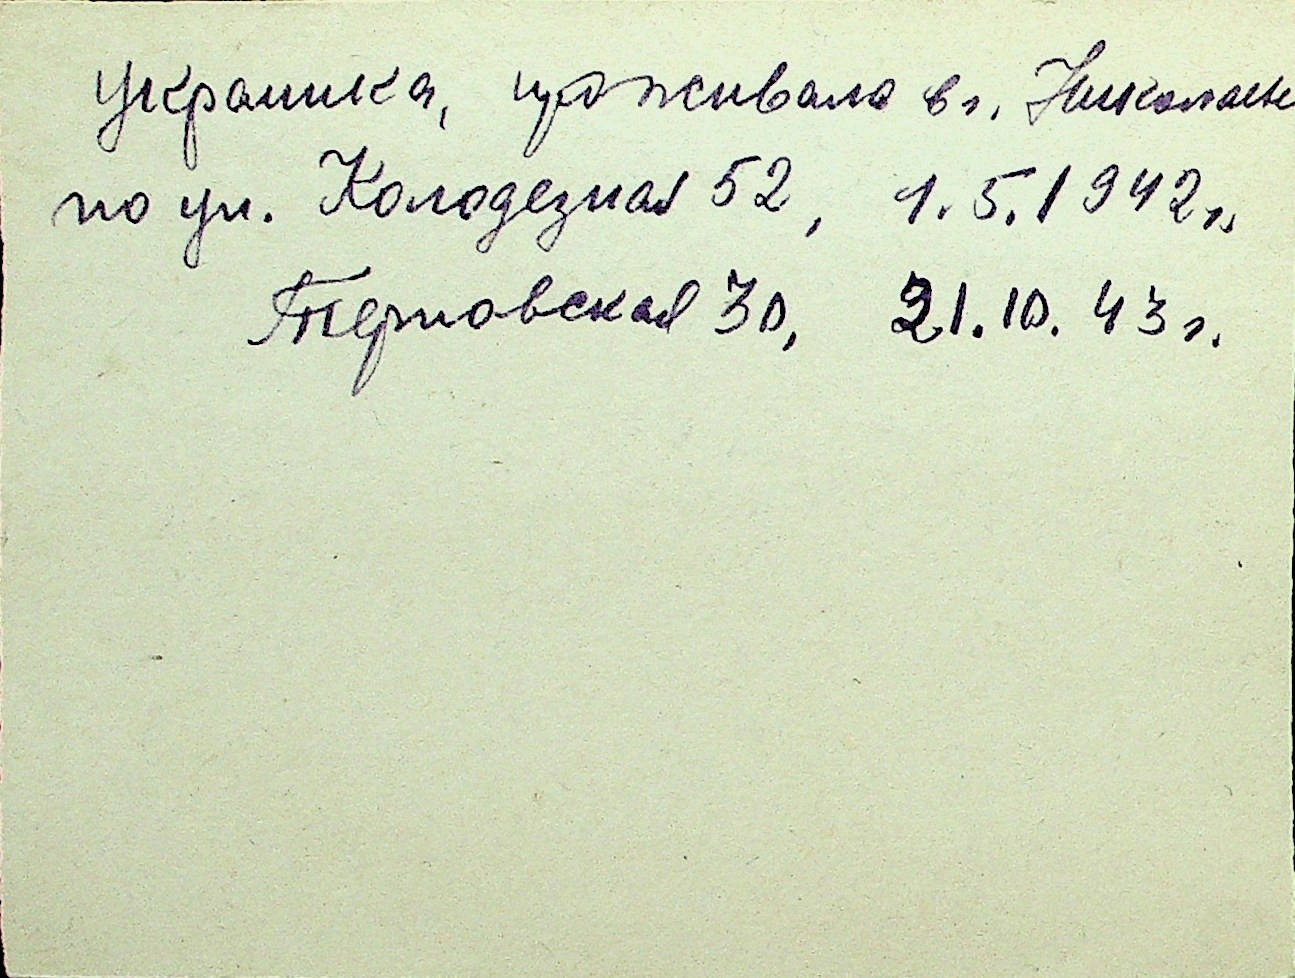 Украинка, проживала в г. Николаеве
по ул. Колодезная 52, 1.5.1942 г.
Терновская 30, 21.10.43 г.